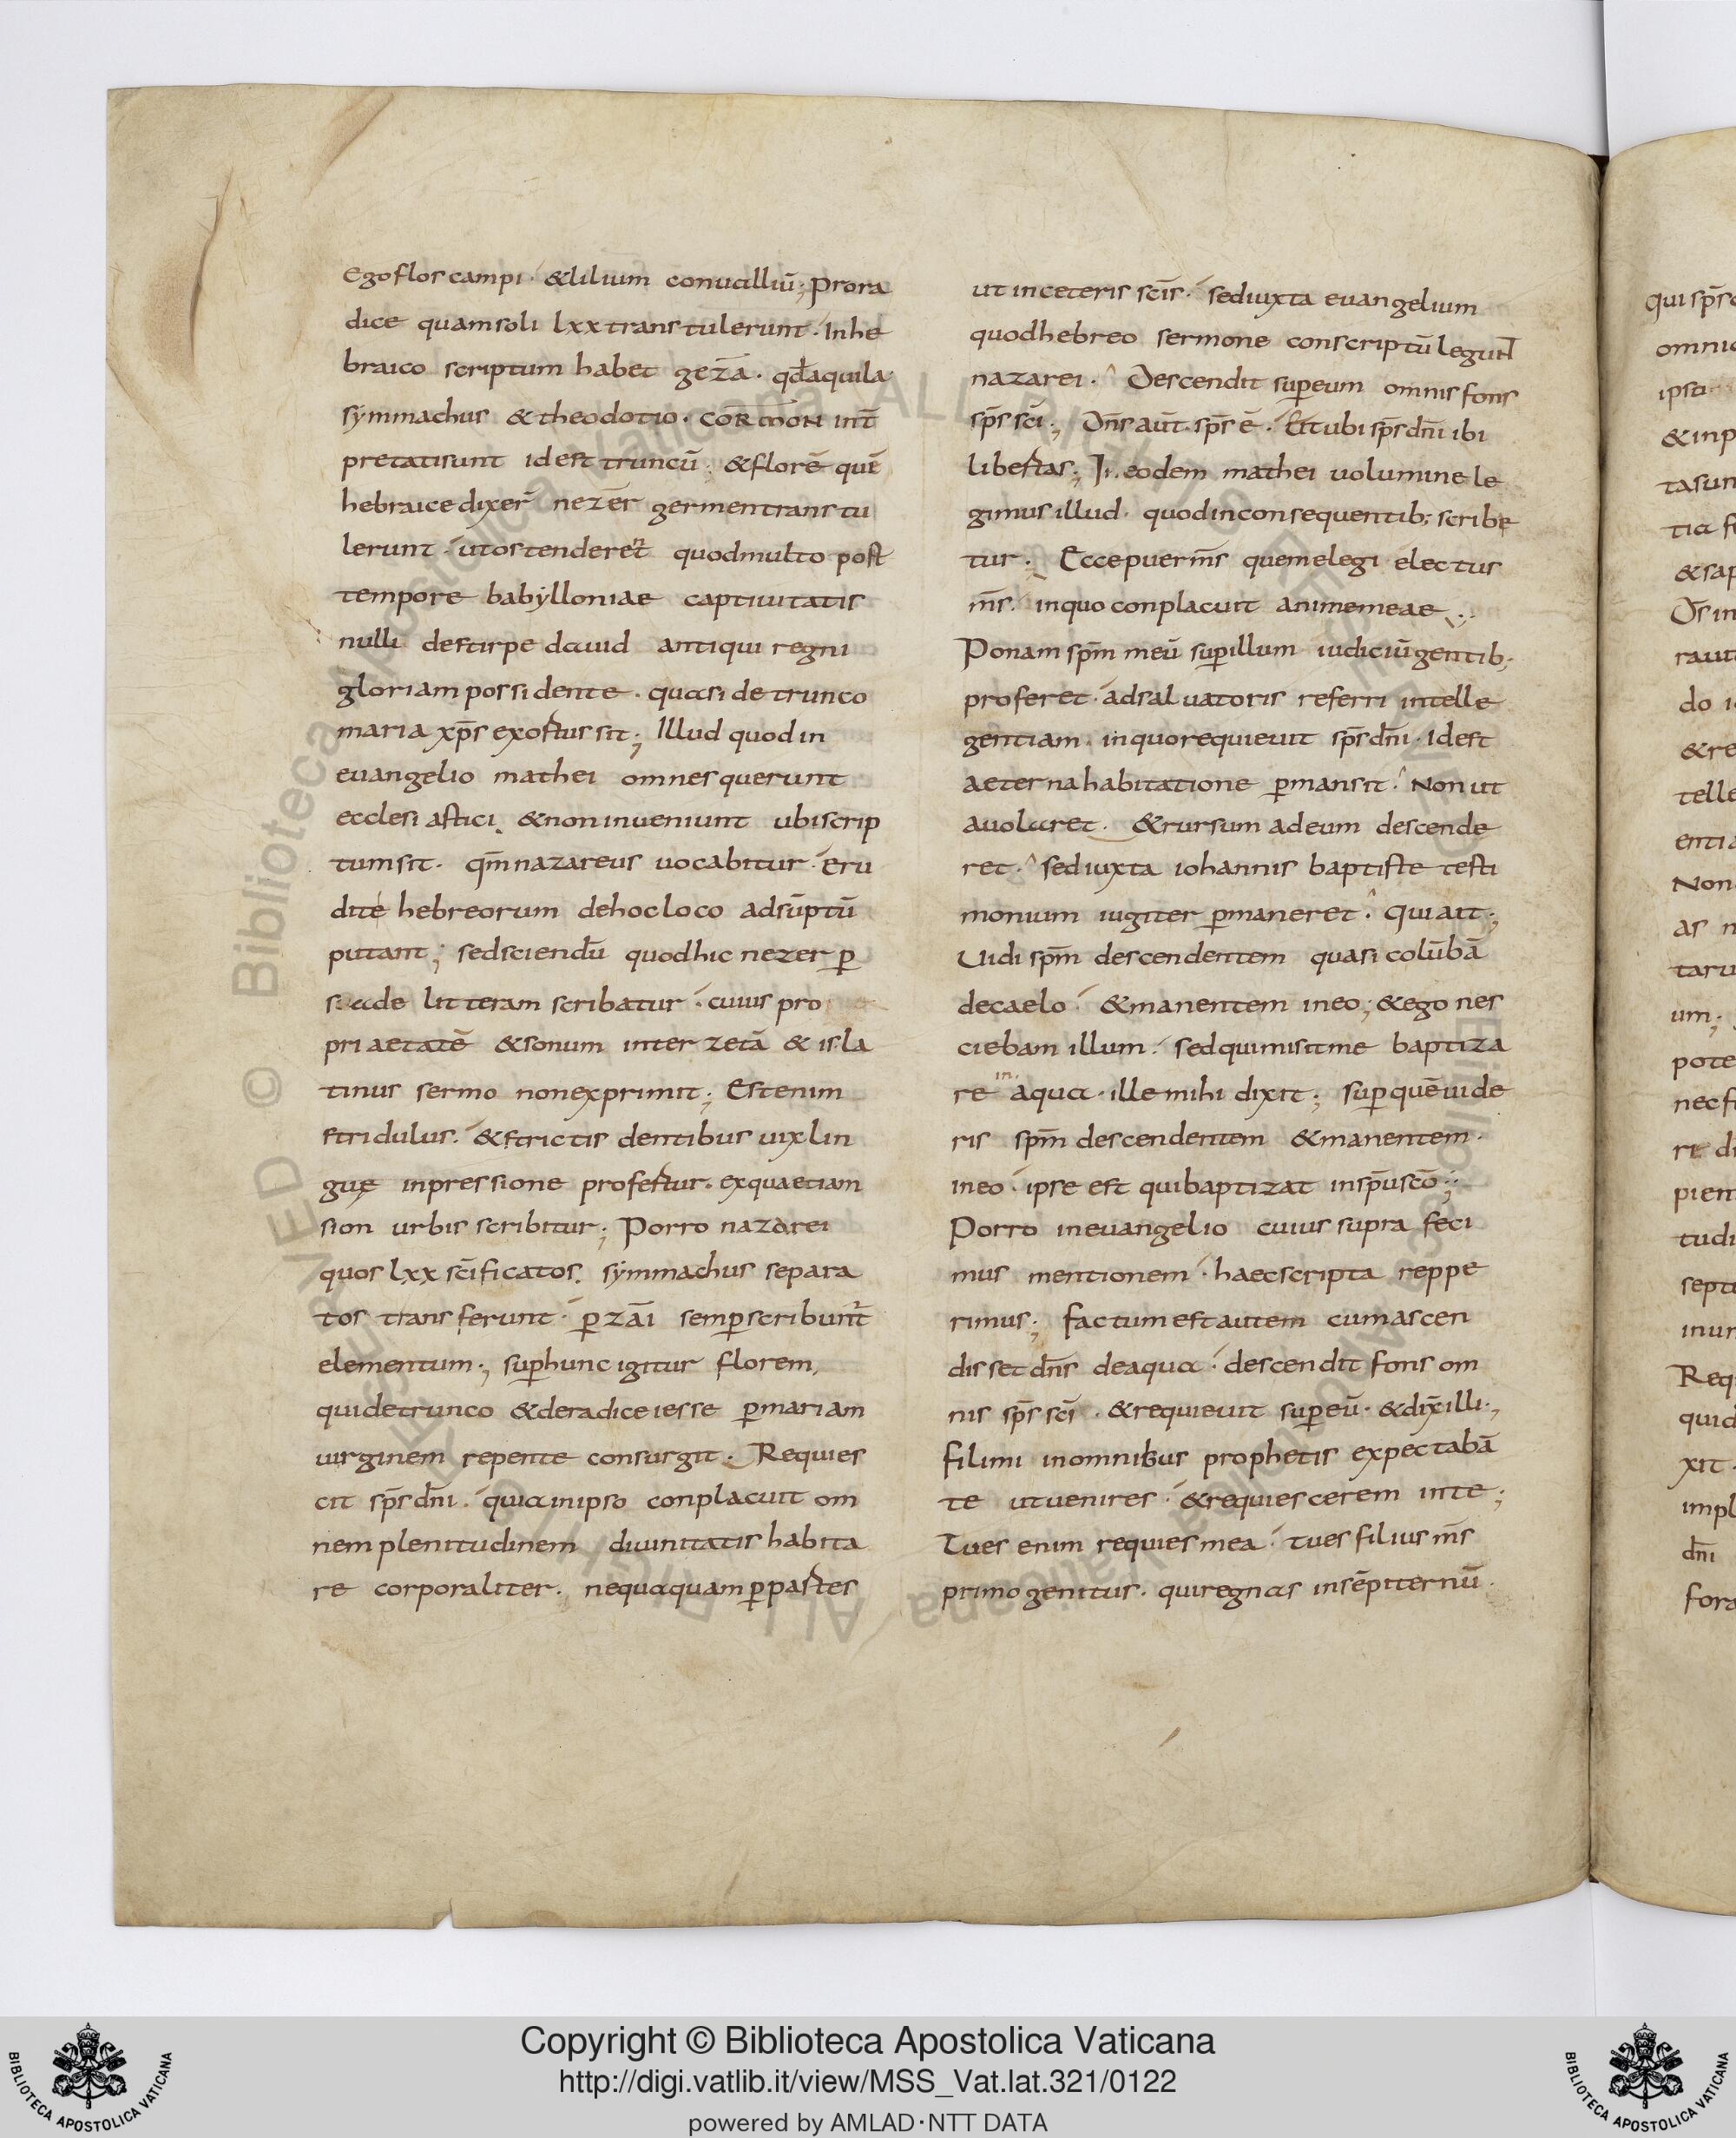 Ego flos campi · & lilium convalliū; Pro ra
dice quam soli lxx transtulerunt · In he
braico scriptum habet gezā · qđ aquila
symmachus & theodotio · CORMON int̄
pretati sunt id est truncū · & florē quē
hebraice dixer̄ nezēr germen transtu
lerunt · ut ostenderet̄ quod multo post
tempore babylloniae captiuitatis
nulli de stirpe dauid antiqui regni
gloriam possidente · quasi de trunco
maria xp̄s exortus sit; Illud quod in
euangelio mathei omnes querunt
ecclesiastici & non inueniunt ubi scrip
tum sit · qm̄ nazareus uocabitur · Eru
dite hebreorum de hoc loco adsūptū
putant; sed sciendū quod hic nezer ꝑ
sade litteram scribatur · cuius pro
priaetatē & sonum inter zetā & is la
tinus sermo non exprimit; Est enim
stridulus · & strictis dentibus uix lin
guę inpressione profertur · ex qua etiam
sion urbis scribitur; Porro nazarei
quos lxx sc̄ificatos. symmachus separa
tos transferunt · ꝑ zāi semꝑ scribunt̄
elementum; suꝑ hunc igitur florem,
qui de trunco & de radice iesse ꝑ mariam
uirginem repente consurgit · Requies
cit sp̄s dn̄i · quia in ipso conplacuit om
nem plenitudinem diuinitatis habita
re corporaliter · nequaquam ꝑ partes
ut in ceteris sc̄is · sed iuxta euangelium
quod hebreo sermone conscriptū legunt
nazarei · Descendit suꝑ eum omnis fons
sp̄s sc̄i; Dn̄s aūt sp̄s ē · Et ubi sp̄s dn̄i ibi
libertas; In eodem mathei uolumine le
gimus illud · quod in consequentib; scribe
tur · Ecce puer m̄s quem elegi electus
m̄s · in quo conplacuit anime meae
Ponam sp̄m meū suꝑ illum iudiciū gentib;
proferet · ad saluatoris referri intelle
gentiam · in quo requieuit sp̄s dn̄i · Id est
aeterna habitatione ꝑmansit · Non ut
auolaret · & rursum ad eum descende
ret · sed iuxta iohannis baptiste testi
monium iugiter ꝑmaneret · Qui ait;
Uidi sp̄m descendentem quasi colūbā
de caelo · & manentem in eo; & ego nes
ciebam illum · sed qui misit me baptiza
re in aqua · ille mihi dixit; suꝑ quē uide
ris sp̄m descendentem & manentem ·
in eo · ipse est qui baptizat in sp̄u sc̄o;
Porro in euangelio cuius supra feci
mus mentionem · haec scripta reppe
rimus; factum est autem cum ascen
disset dn̄s de aqua · descendit fons om
nis sp̄s sc̄i · & requieuit suꝑ eū · & dix̄ illi ·,
fili mi in omnibus prophetis expectabā
te ut uenires · & requiescerem in te;
Tu es enim requies mea · tu es filius m̄s
primogenitus · qui regnas in sēpiternū ·
Copyright © Biblioteca Apostolica Vaticana
http://digi.vatlib.it/view/MSS_Vat.lat.321/0122
powered by AMLAD·NTT DATA
BIBLIOTECA APOSTOLICA VATICANA
BIBLIOTECA APOSTOLICA VATICANA